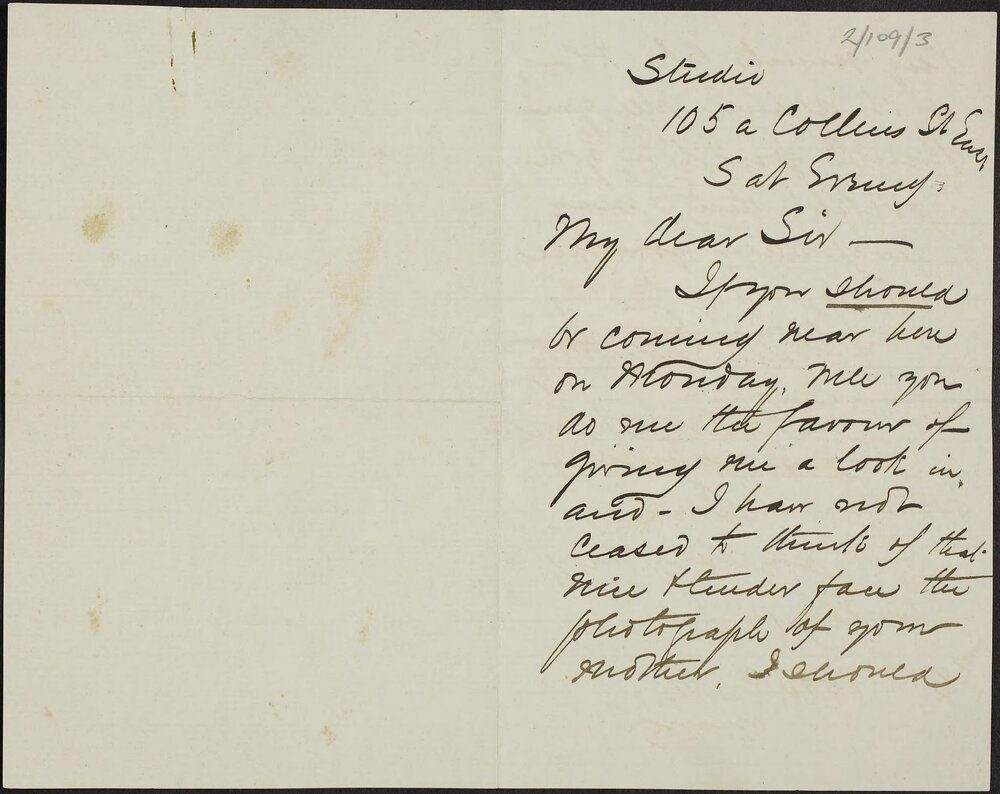 2/109/3
Studio
105 a Collins St East
Sat Evening.
My dear Sir —
If you should
be coming near here
on Monday, will you
do me the favour of
giving me a look in,
and - I have not
ceased to think of that
nice & tender face the
photograph of your
mother. I should